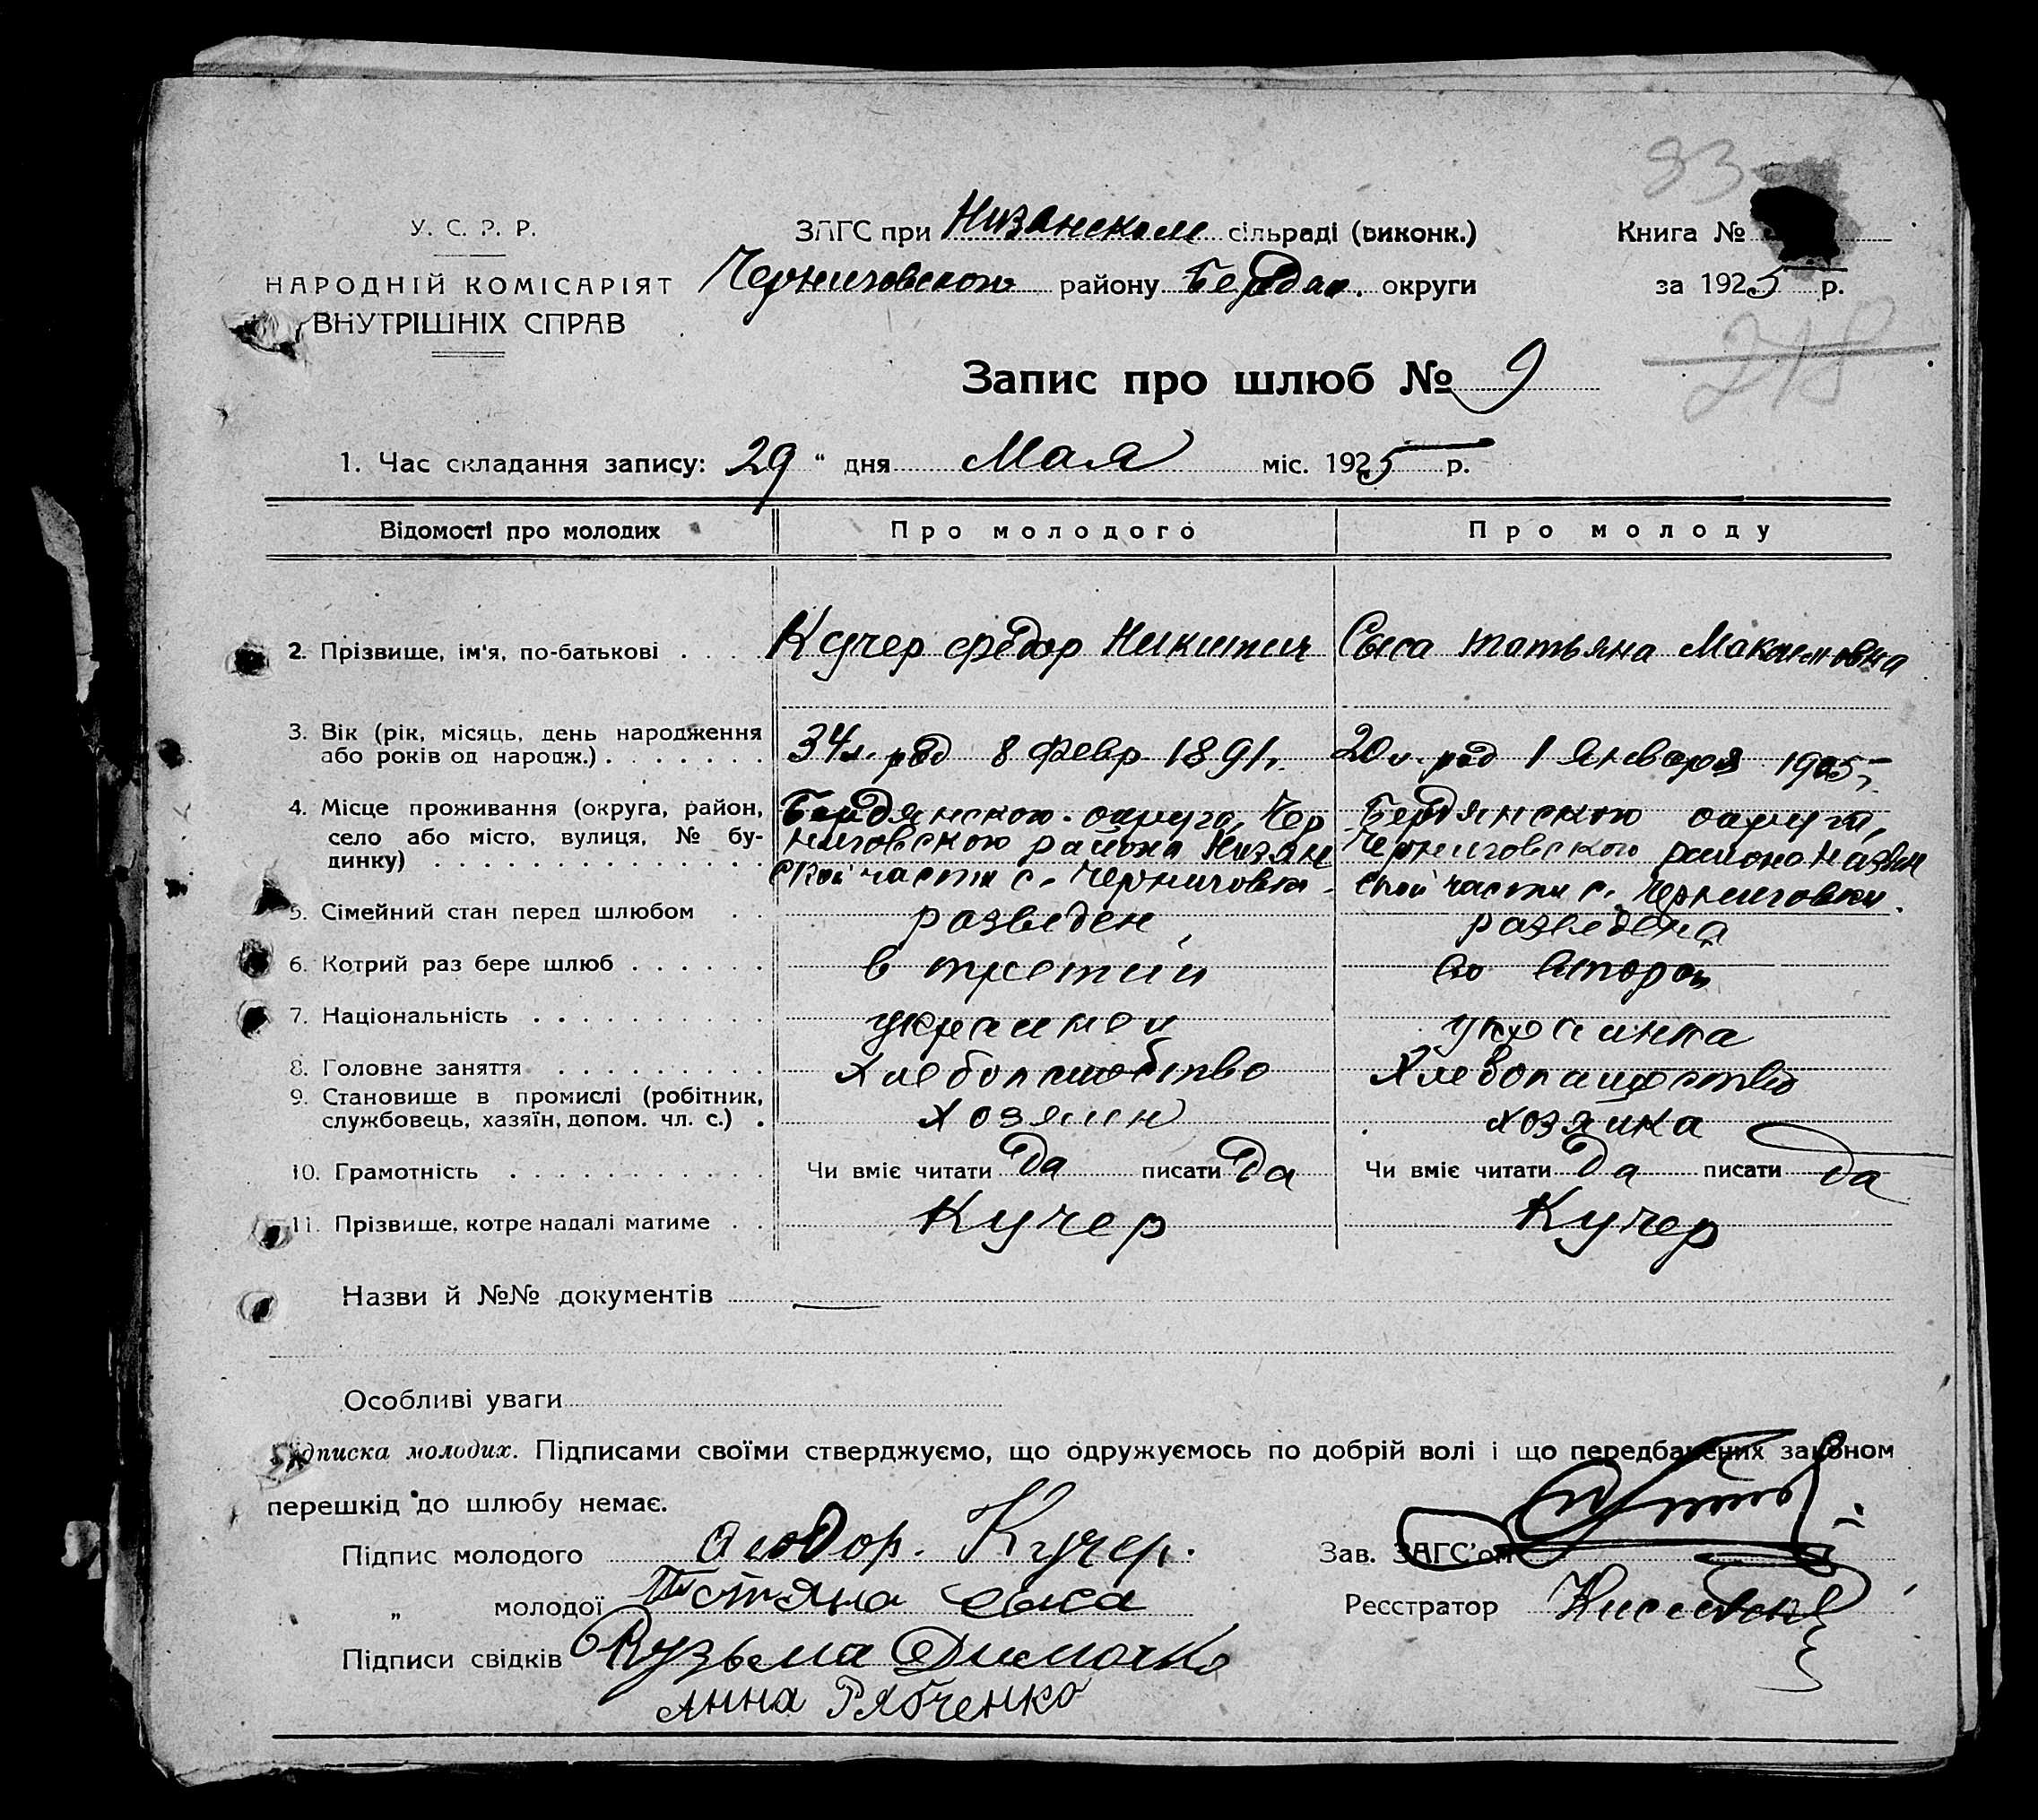 83
У. С. Р. Р.
ЗАГС при Низянском сільраді (виконк.)
Книга №
НАРОДНІЙ КОМІСАРІЯТ
Черниговского району Бердян. округи
за 1925 р.
ВНУТРІШНІХ СПРАВ
218
Запис про шлюб № 9
1. Час складання запису: 29 " дня Мая міс. 1925 р.
Відомості про молодих
Про молодого
Про молоду
2. Прізвище, ім'я, по-батькові
Кучер Фёдор Никитич
Сыса Татьяна Максимовна
3. Вік (рік, місяць, день народження
або років од народж.)
34 л. род 8 февр 1891 г.
20 л. род 1 января 1905 г.
4. Місце проживання (округа, район,
село або місто, вулиця, № бу-
динку)
Бердянского округа, Чер
ниговского района Низян
ской части с. Черниговки.
Бердянского округа,
Черниговского района Низян
ской части с. Черниговки.
5. Сімейний стан перед шлюбом
разведен
разведена
6. Котрий раз бере шлюб
в третий
во второй
7. Національність
украинец
украинка
8. Головне заняття
хлебопашество
хлебопашество
9. Становище в промислі (робітник,
службовець, хазяїн, допом. чл. с.)
хозяин
хозяйка
10. Грамотність
Чи вміє читати да писати да
Чи вміє читати да писати да
11. Прізвище, котре надалі матиме
Кучер
Кучер
Назви й №№ документів —
Особливі уваги
Підписка молодих. Підписами своїми стверджуємо, що одружуємось по добрій волі і що передбачених законом
перешкід до шлюбу немає.
Підпис молодого Феодор. Кучер.
Зав. ЗАГС'ом
„ молодої Тетяна Сыса
Реєстратор
Підписи свідків Кузьма Димочко
Анна Рябченко